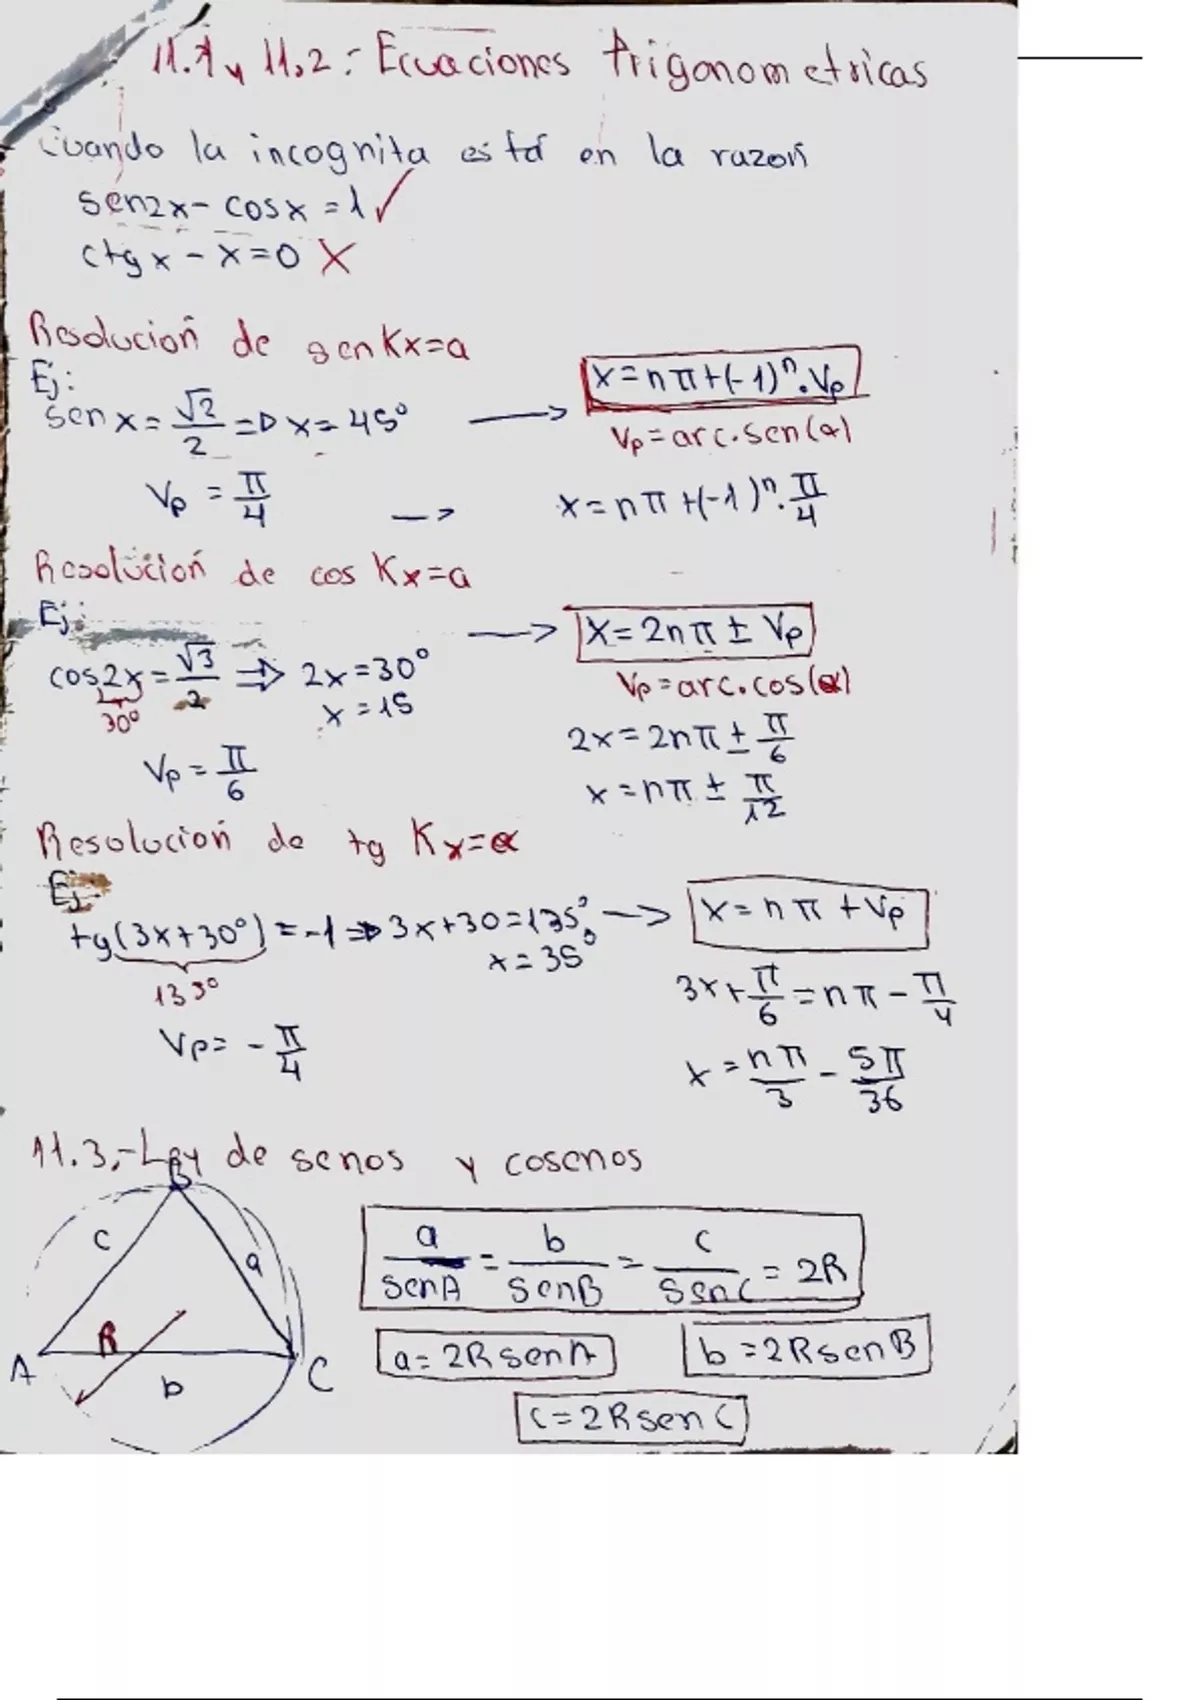 11.1 y 11.2: Ecuaciones trigonometricas
Cuando la incognita está en la razón
sen2x - cosx = 1 ✓
ctgx - x = 0 X
Resolución de sen Kx=a
Ej:
sen x = √2/2 => x = 45° → x = nπ+(-1)ⁿ.Vp
Vp = arc.sen(a)
Vp = π/4 → x = nπ+(-1)ⁿ.π/4
Resolución de cos Kx=a
Ej:
cos2x = √3/2 => 2x = 30° → x = 2nπ ± Vp
30° x = 15 Vp = arc.cos(α)
2x = 2nπ ± π/6
Vp = π/6 x = nπ ± π/12
Resolución de tg Kx=α
Ej:
tg(3x+30°) = -1 => 3x+30=135° → x = nπ + Vp
x = 35°
3x + π/6 = nπ - π/4
Vp = - π/4
x = nπ/3 - 5π/36
11.3.- Ley de senos y cosenos
B
c a
R
A b C
a/senA = b/senB = c/senC = 2R
a = 2RsenA b = 2RsenB
c = 2RsenC